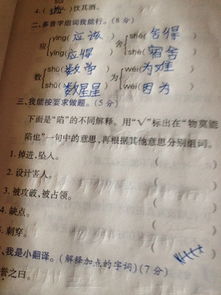 4.( )饮其酒。
二、多音字组词我能行。(8分)
应 yīng( 应该 ) 舍 shě( 舍得 )
yìng( 应得 ) shè( 宿舍 )
数 shù( 数学 ) 为 wéi( 为难 )
shǔ( 数星星 ) wèi( 因为 )
三、我能按要求做题。(5分)
下面是“陷”的不同解释,用“√”标出在“物莫能
陷也”一句中的意思,再根据其他意思分别组词。
1.掉进,坠入。 ( )
2.设计害人。 ( )
3.被攻破,被占领。 ( )
4.缺点。 ( )
5.刺穿。 ( )
、我是小翻译。(解释加点的字词)(7分)
誉之曰。